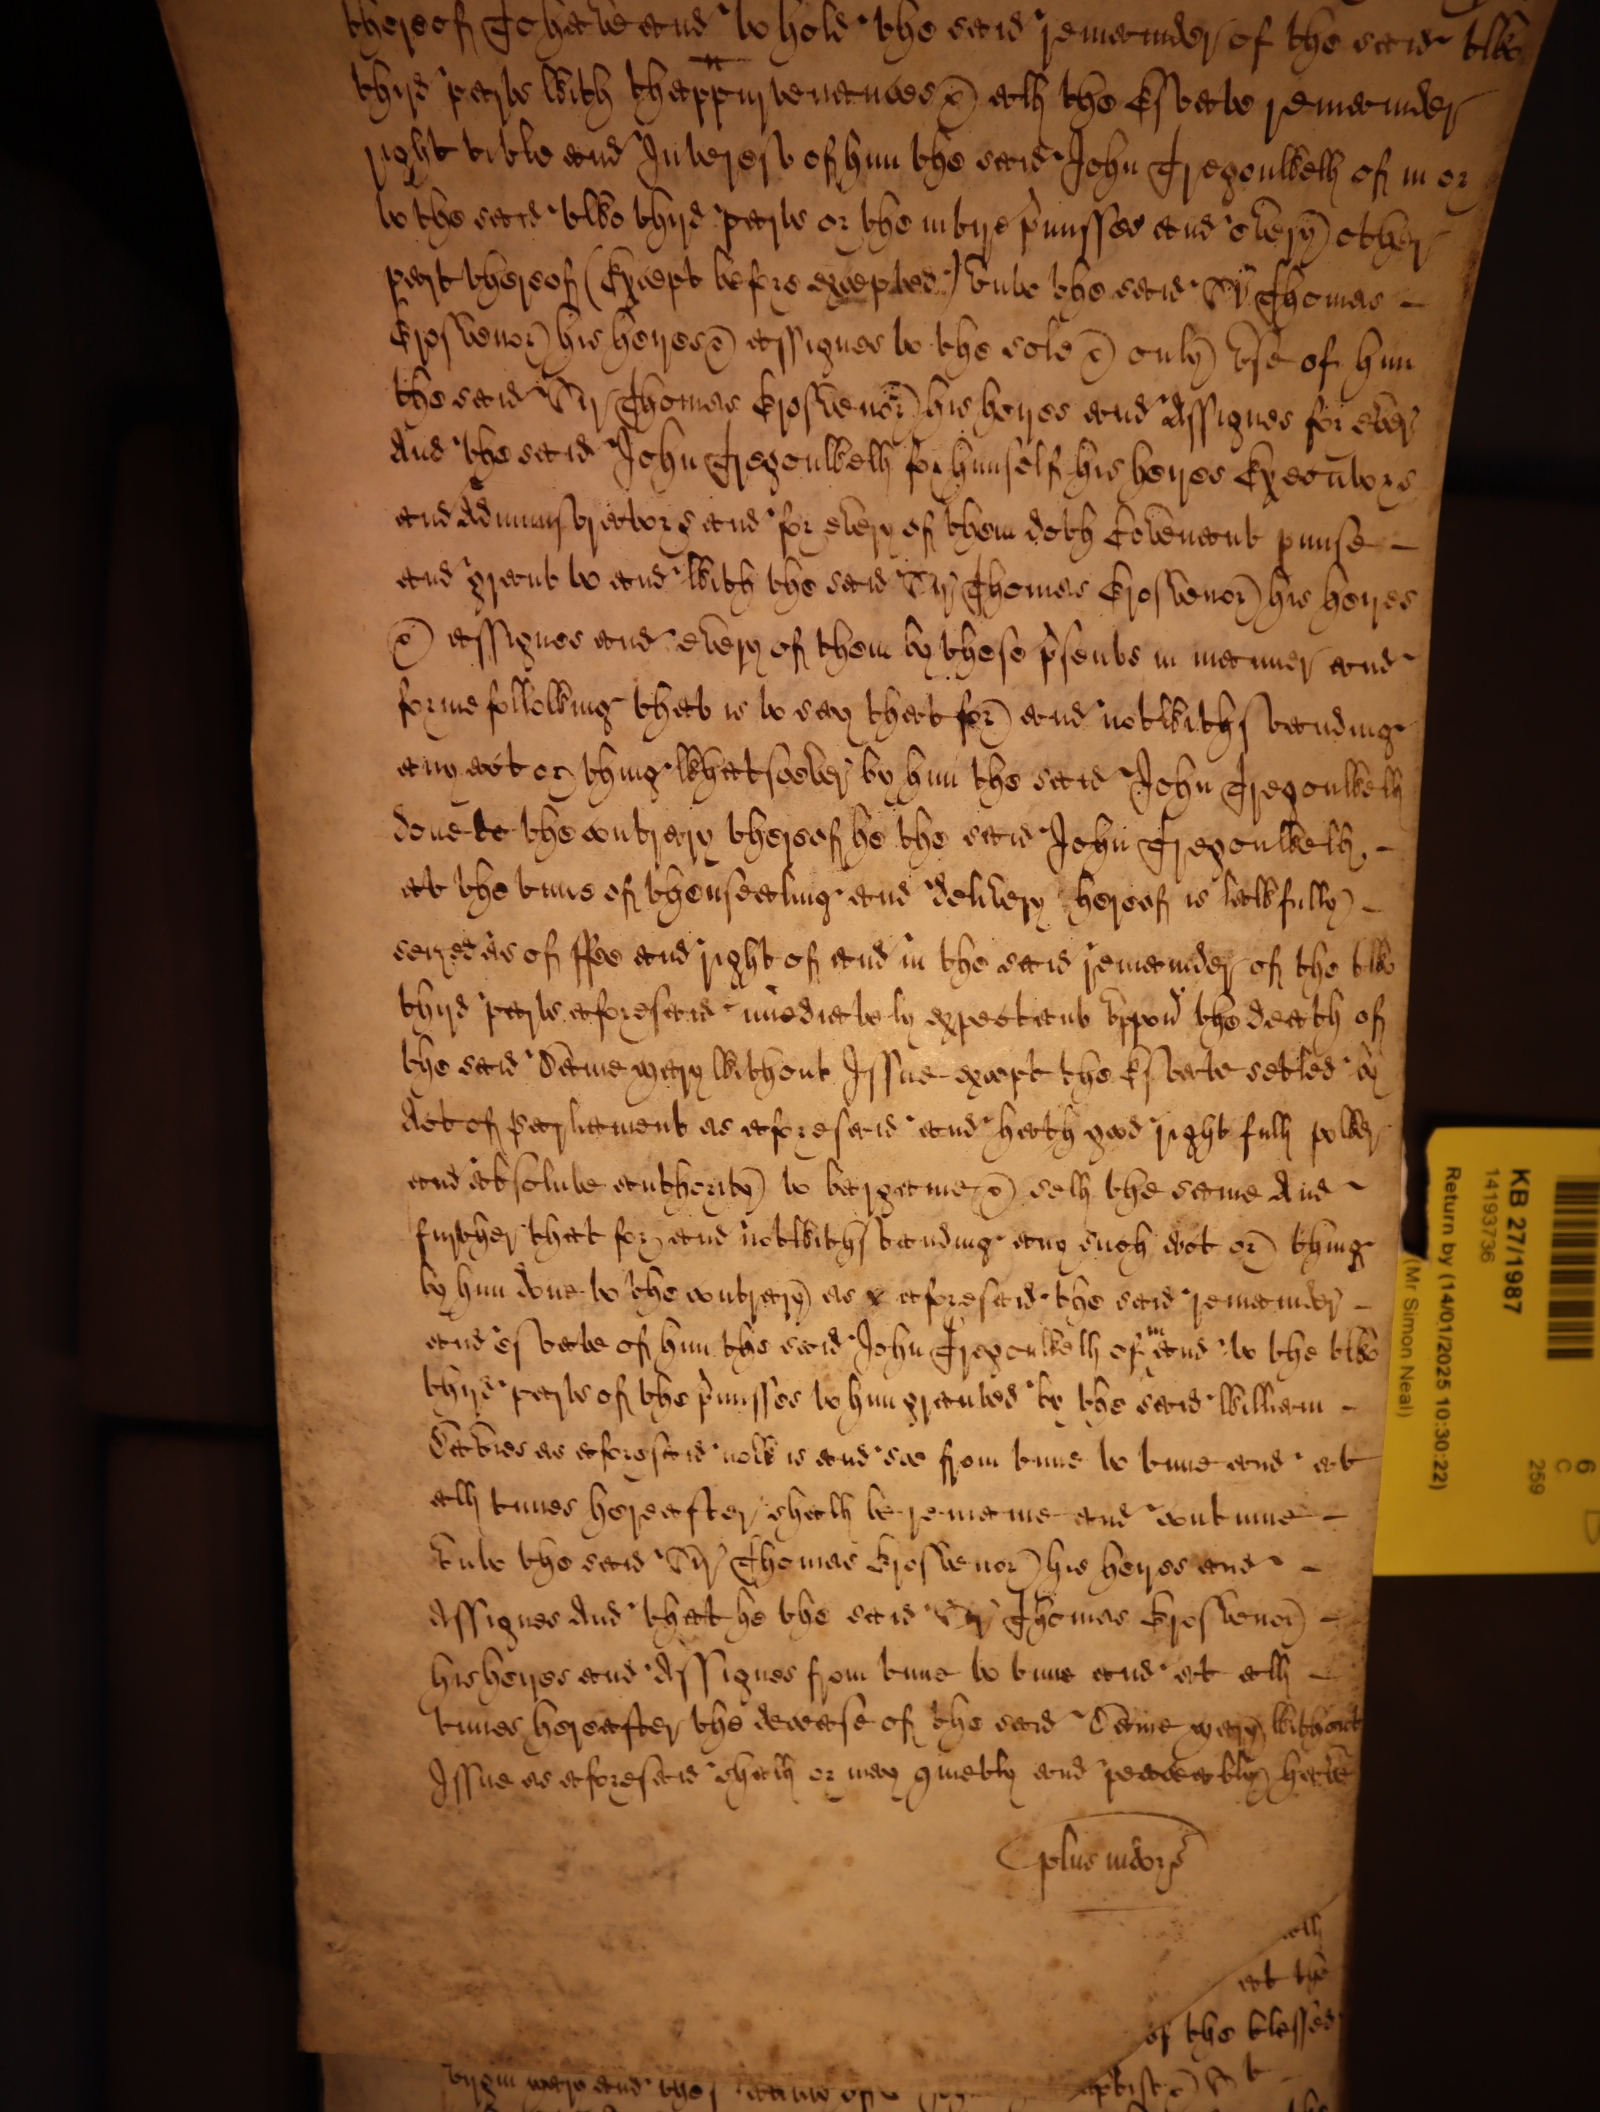 thereof To have and to hold the said remainder of the said two
third parts with thappurtenances & all the Estate remainder
right title and Interest of him the said John Tregonwell of in or
to the said two third parts or the intire p'misses and every other
part thereof (Except before excepted) vnto the said Sr Thomas –
Grosvenor his heires & assignes to the sole & only vse of him
the said Sr Thomas Grosvenor his heires and Assignes for ever
And the said John Tregonwell for himself his heires Executors
and Administrators and for every of them doth Covenant p'mise –
and grant to and with the said Sr Thomas Grosvenor his heires
& assignes and every of them by these p'sents in manner and
forme following that is to say that for and notwithstanding
any act or thing whatsoever by him the said John Tregonwell
done to the contrary thereof he the said John Tregonwell –
at the time of thensealing and delivery hereof is lawfully –
seized as of ffee and right of and in the said remainder of the two
third parts aforesaid imediately expectant vppon the death of
the said Dame Mary without Issue except the Estate setled by
Act of Parliament as aforesaid and hath good right full power
and absolute authority to bargaine & sell the same And
further that for and notwithstanding any such act or thing
by him done to the contrary as aforesaid the said remainder –
and estate of him the said John Tregonwell of in and to the two
third parts of the p'misses to him granted by the said William –
Davies as aforesaid now is and soe from time to time and at
all times hereafter shall be remaine and continue –
vnto the said Sr Thomas Grosvenor his heires and –
Assignes And that he the said Sr Thomas Grosvenor –
his heires and Assignes from time to time and at all –
times hereafter the decease of the said Dame Mary without
Issue as aforesaid shall or may quietly and peaceably have
plus indors
all
at the
of the blessed
virgin Mary and the
KB 27/1987
14193736
Return by (14/01/2025 10:30:22)
(Mr Simon Neal)
6
C
259